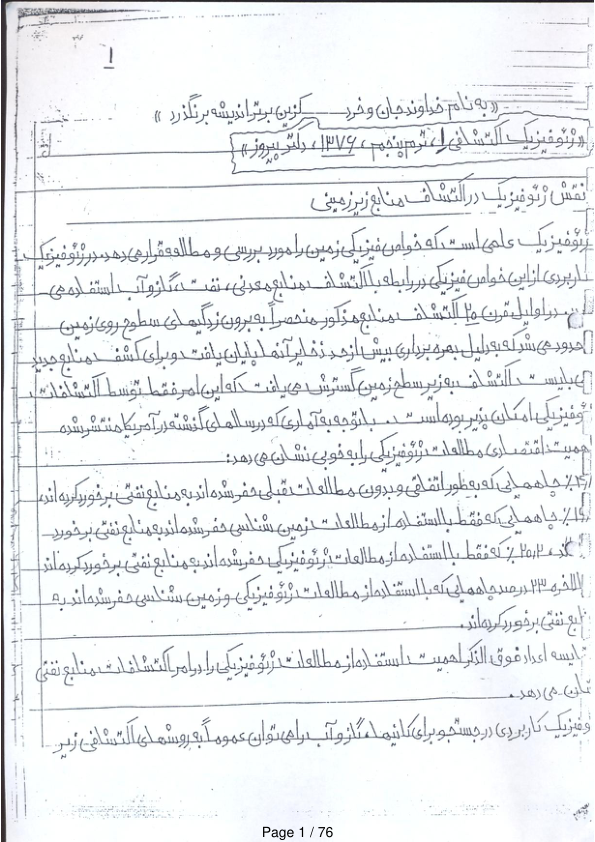 1
«به نام خداوند جان و خرد کزین برتر اندیشه برنگذرد»
«ژئوفیزیک اکتشافی ۱، ترم پنجم، ۱۳۷۶، دکتر پیروز»
نقش ژئوفیزیک در اکتشاف منابع زیرزمینی
ژئوفیزیک علمی است که خواص فیزیکی زمین را مورد بررسی و مطالعه قرار می دهد. در ژئوفیزیک
کاربردی از این خواص فیزیکی در رابطه با اکتشاف منابع معدنی، نفت، گاز و آب استفاده می
در اوایل قرن ۲۰ اکتشاف منابع مذکور منحصراً به برون زدگیهای سطوح روی زمین
محدود می شد که به دلیل بهره برداری بیش از حد ذخایر آنها پایان یافت و برای کشف منابع جدید
می بایست اکتشاف به زیر سطح زمین گسترش می یافت که این امر فقط توسط اکتشافات
ژئوفیزیکی امکان پذیر بوده است. با توجه به آماری که در سالهای گذشته در آمریکا منتشر شده
اهمیت اقتصادی مطالعات ژئوفیزیکی را به خوبی نشان می دهد:
چاههایی که بطور اتفاقی و بدون مطالعات قبلی حفر شده اند به منابع نفتی برخورد کرده اند،
چاههایی که فقط با استفاده از مطالعات زمین شناسی حفر شده اند به منابع نفتی برخورد
۲۰،۲ ٪ که فقط با استفاده از مطالعات ژئوفیزیکی حفر شده اند به منابع نفتی برخورد کرده اند
بالاخره ۲۳ درصد چاههایی که با استفاده از مطالعات ژئوفیزیکی و زمین شناسی حفر شده اند به
منابع نفتی برخورد کرده اند.
مقایسه اعداد فوق الذکر اهمیت استفاده از مطالعات ژئوفیزیکی را در امر اکتشافات منابع نفتی
نشان می دهد.
ژئوفیزیک کاربردی در جستجو برای کانیها، گاز و آب را می توان عموماً به روشهای اکتشافی زیر
Page 1 / 76